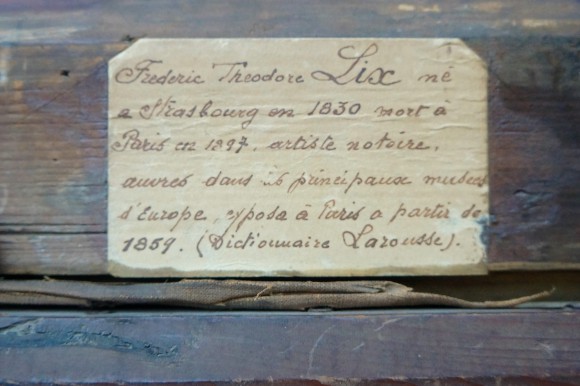 Frederic Theodore Lix né
a Strasbourg en 1830 mort à
Paris en 1897, artiste notoire,
œuvres dans les principaux musées
d'Europe, exposa à Paris a partir de
1859. (Dictionnaire Larousse).